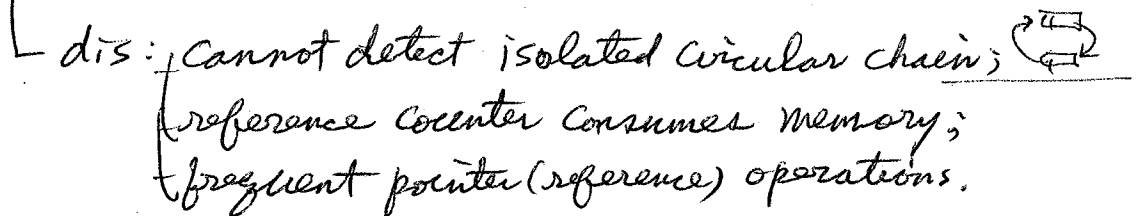 dis: cannot detect isolated circular chain;
reference counter consumes memory;
frequent pointer (reference) operations.